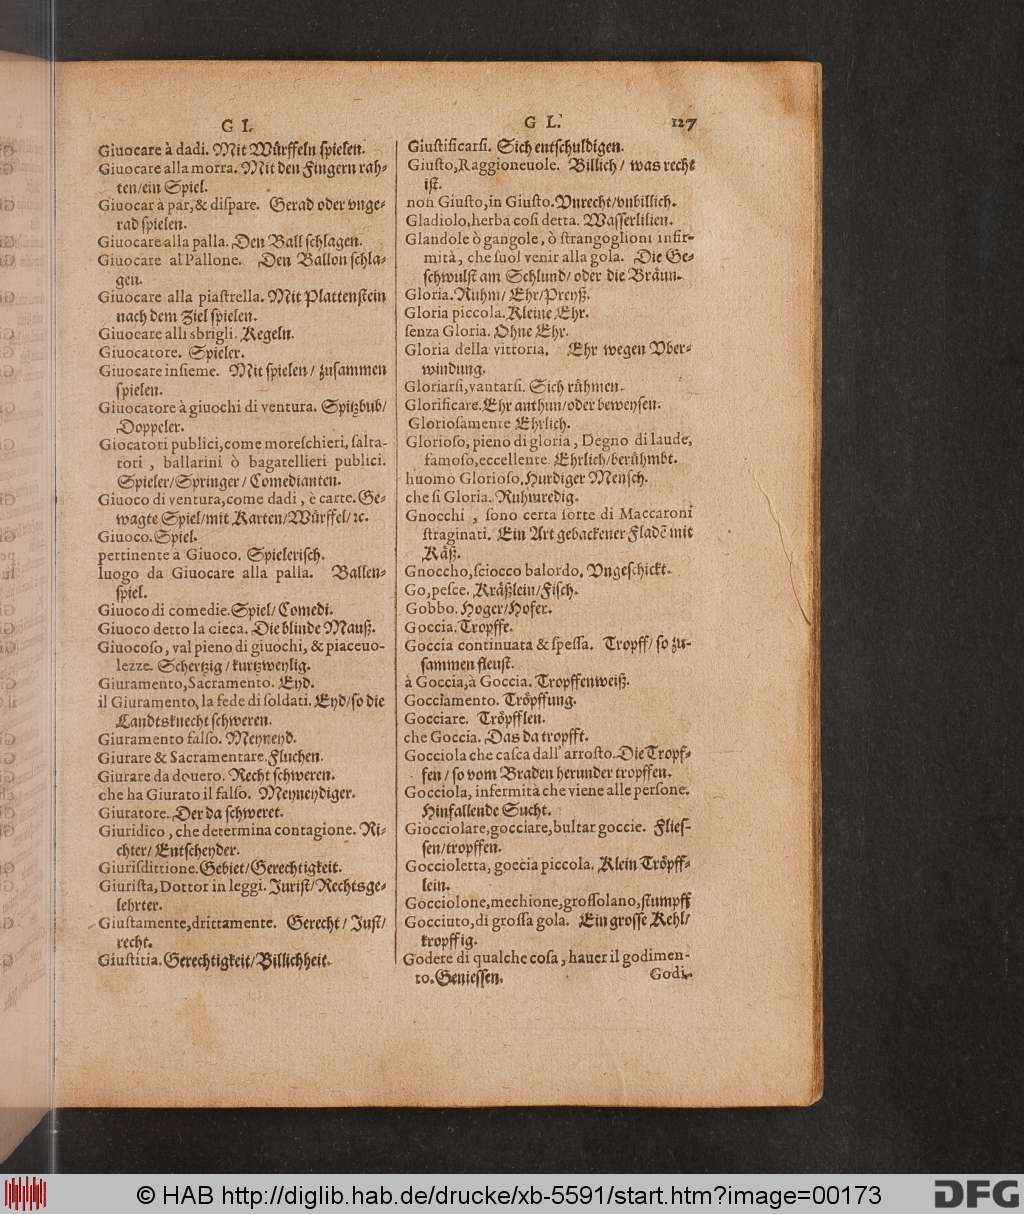 G I.
Giuocare à dadi. Mit Wůrffeln spielen.
Giuocare alla morra. Mit den Fingern rah-
ten/ein Spiel.
Giuocar à par, & dispare. Gerad oder vnge-
rad spielen.
Giuocare alla palla. Den Ball schlagen.
Giuocare al Pallone. Den Ballon schla-
gen.
Giuocare alla piastrella. Mit Plattenstein
nach dem Ziel spielen.
Giuocare alli sbrigli. Kegeln.
Giuocatore. Spieler.
Giuocare insieme. Mit spielen / zusammen
spielen.
Giuocatore à giuochi di ventura. Spitzbub/
Doppeler.
Giocatori publici, come moreschieri, salta-
tori , ballarini ò bagatellieri publici.
Spieler/Springer / Comedianten.
Giuoco di ventura, come dadi , è carte. Ge-
wagte Spiel/mit Karten/Wůrffel/ ꝛc.
Giuoco. Spiel.
pertinente a Giuoco. Spielerisch.
luogo da Giuocare alla palla. Ballen-
spiel.
Giuoco di comedie. Spiel/ Comedi.
Giuoco detto la cieca. Die blinde Mauß.
Giuocoso, val pieno di giuochi, & piaceuo-
lezze. Schertzig / kurtzweylig.
Giuramento, Sacramento. Eyd.
il Giuramento, la fede di soldati. Eyd/so die
Landtsknecht schweren.
Giuramento falso. Meyneyd.
Giurare & Sacramentare. Fluchen.
Giurare da douero. Recht schweren.
che ha Giurato il falso. Meyneydiger.
Giuratore. Der da schweret.
Giuridico , che determina contagione. Ri-
chter/ Entscheyder.
Giurisdittione. Gebiet/Gerechtigkeit.
Giurista, Dottor in leggi. Jurist/Rechtsge-
lehrter.
Giustamente, drittamente. Gerecht / Just/
recht.
Giustitia. Gerechtigkeit/Billichheit.
G L. 127
Giustificarsi. Sich entschuldigen.
Giusto, Raggioneuole. Billich / was recht
ist.
non Giusto, in Giusto. Vnrecht/vnbillich.
Gladiolo, herba cosi detta. Wasserlilien.
Glandole ò gangole , ò strangoglioni infir-
mità, che suol venir alla gola. Die Ge-
schwulst am Schlund/ oder die Bråun.
Gloria. Ruhm/ Ehr/Preyß.
Gloria piccola. Kleine Ehr.
senza Gloria. Ohne Ehr.
Gloria della vittoria. Ehr wegen Vber-
windung.
Gloriarsi, vantarsi. Sich růhmen.
Glorificare. Ehr anthun/oder beweysen.
Gloriosamente Ehrlich.
Glorioso, pieno di gloria , Degno di laude,
famoso, eccellente. Ehrlich/berůhmbt.
huomo Glorioso. Hurdiger Mensch.
che si Gloria. Ruhmredig.
Gnocchi , sono certa sorte di Maccaroni
straginati. Ein Art gebackener Fladē mit
Kåß.
Gnoccho, sciocco balordo. Vngeschickt.
Go, pesce. Kråßlein/Fisch.
Gobbo. Hoger/Hofer.
Goccia. Tropffe.
Goccia continuata & spessa. Tropff/ so zu-
sammen fleust.
à Goccia, à Goccia. Tropffenweiß.
Gocciamento. Trőpffung.
Gocciare. Trőpfflen.
che Goccia. Das da tropfft.
Gocciola che casca dall' arrosto. Die Tropf-
fen / so vom Braden herunder tropffen.
Gocciola, infermità che viene alle persone.
Hinfallende Sucht.
Giocciolare, gocciare, buttar goccie. Flies-
sen/tropffen.
Goccioletta, goccia piccola. Klein Trőpff-
lein.
Gocciolone, mechione, grossolano, stumpff
Gocciuto, di grossa gola. Ein grosse Kehl/
kropffig.
Godere di qualche cosa , hauer il godimen-
to. Geniessen.
Godi-
© HAB http://diglib.hab.de/drucke/xb-5591/start.htm?image=00173
DFG